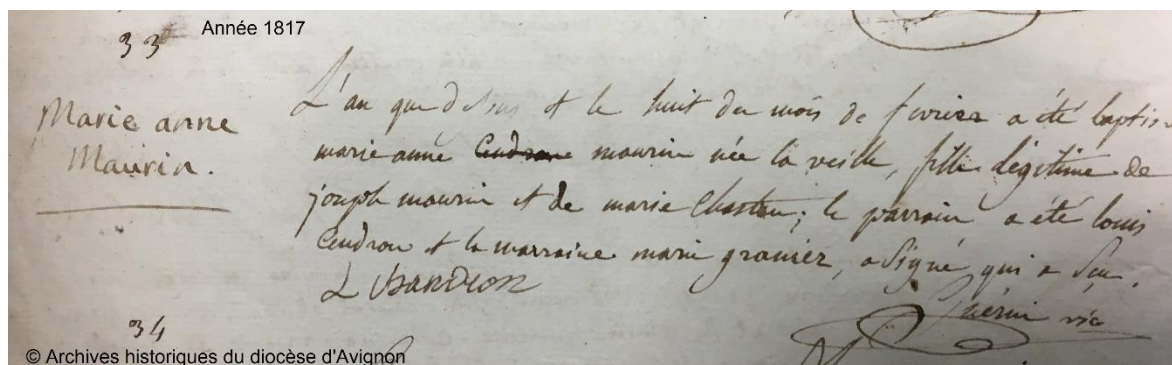 33
Année 1817
Marie anne
Maurin.
L'an que dessus et le huit du mois de fevrier a été baptis.
marie anne Cendrone maurin née la veille, fille légitime de
joseph maurin et de marie Chastan; le parrain a été louis
Cendron et la marraine marie granier, a signé qui a su.
L ChanDron
Guérin vic
34
© Archives historiques du diocèse d'Avignon